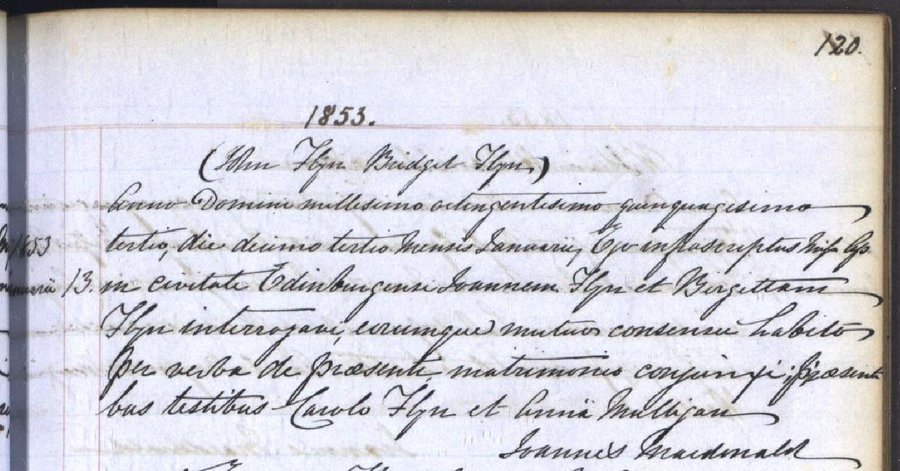 120.
1853.
(John Flyn Bridget Flyn)
Anno Domini millesimo octingentesimo quinquagesimo
tertio, die decimo tertio Mensis Januarii, Ego infrascriptus Miss. Ap.
1853
13. in civitate Edinburgensi Joannem Flyn et Birgettam
Flyn interrogavi, eorumque mutuo consensu habito
per verba de præsente matrimonio conjunxi; præsenti
bus testibus Carolo Flyn et Anna Mulligan
Joannes Macdonald